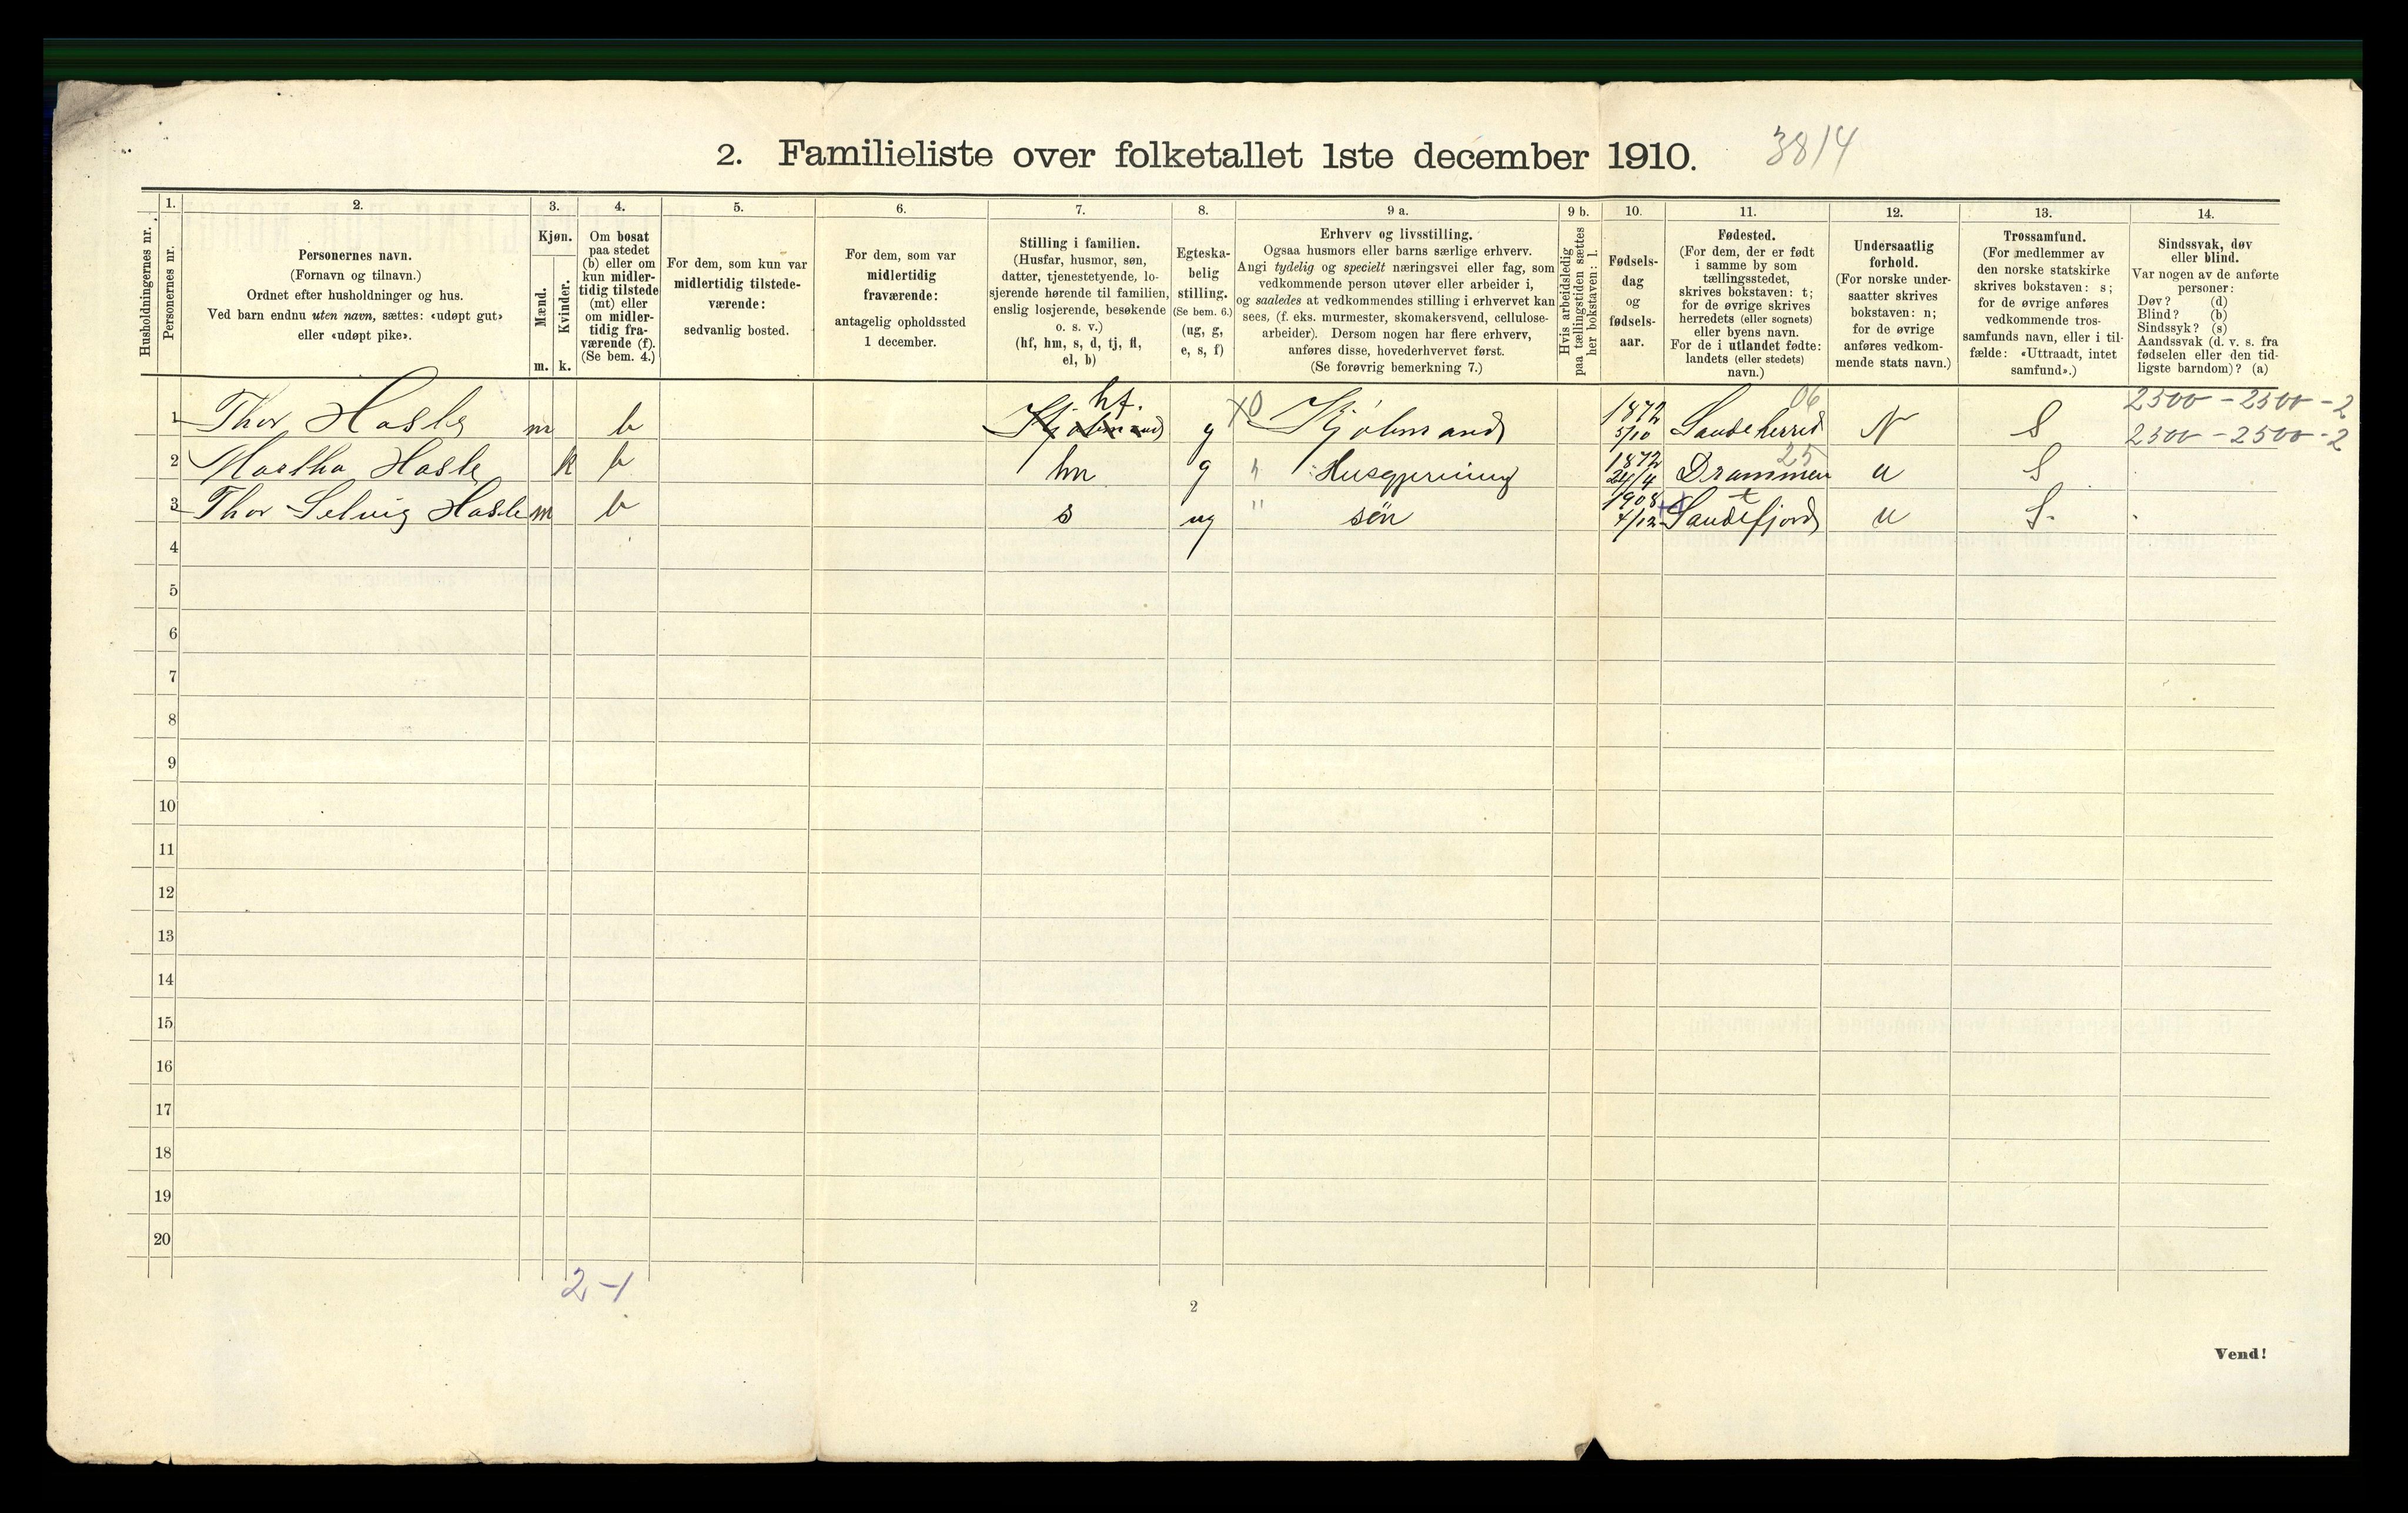 2. Familieliste over folketallet 1ste december 1910. 3814
Husholdningernes nr.
1.
Personernes nr.
2.
Personernes navn.
(Fornavn og tilnavn.)
Ordnet efter husholdninger og hus.
Ved barn endnu uten navn, sættes: «udøpt gut»
eller «udøpt pike».
3.
Kjøn.
Mænd.
Kvinder.
m. k.
4.
Om bosat
paa stedet
(b) eller om
kun midler-
tidig tilstede
(mt) eller
om midler-
tidig fra-
værende (f).
(Se bem. 4.)
5.
For dem, som kun var
midlertidig tilstede-
værende:
sedvanlig bosted.
6.
For dem, som var
midlertidig
fraværende:
antagelig opholdssted
1 december.
7.
Stilling i familien.
(Husfar, husmor, søn,
datter, tjenestetyende, lo-
sjerende hørende til familien,
enslig losjerende, besøkende
o. s. v.)
(hf, hm, s, d, tj, fl,
el, b)
8.
Egteska-
belig
stilling.
(Se bem. 6.)
(ug, g,
e, s, f)
9 a.
Erhverv og livsstilling.
Ogsaa husmors eller barns særlige erhverv.
Angi tydelig og specielt næringsvei eller fag, som
vedkommende person utøver eller arbeider i,
og saaledes at vedkommendes stilling i erhvervet kan
sees, (f. eks. murmester, skomakersvend, cellulose-
arbeider). Dersom nogen har flere erhverv,
anføres disse, hovederhvervet først.
(Se forøvrig bemerkning 7.)
9 b.
Hvis arbeidsledig
paa tællingstiden sættes
her bokstaven: l.
10.
Fødsels-
dag
og
fødsels-
aar.
11.
Fødested.
(For dem, der er født
i samme by som
tællingsstedet,
skrives bokstaven: t;
for de øvrige skrives
herredets (eller sognets)
eller byens navn.
For de i utlandet fødte:
landets (eller stedets)
navn.)
12.
Undersaatlig
forhold.
(For norske under-
saatter skrives
bokstaven: n;
for de øvrige
anføres vedkom-
mende stats navn.)
13.
Trossamfund.
(For medlemmer av
den norske statskirke
skrives bokstaven: s;
for de øvrige anføres
vedkommende tros-
samfunds navn, eller i til-
fælde: «Uttraadt, intet
samfund».)
14.
Sindssvak, døv
eller blind.
Var nogen av de anførte
personer:
Døv? (d)
Blind? (b)
Sindssyk? (s)
Aandssvak (d. v. s. fra
fødselen eller den tid-
ligste barndom)? (a)
1 Thor Hasle m b Kjøbmand hf. g X0 Kjøbmand 1872 5/10 Sandeherred 06 N S 2500 - 2500 - 2
2500 - 2500 - 2
2 Martha Hasle k b hm g " Husgjerning 1872 24/4 Drammen 25 n S
3 Thor Selvig Hasle m b s ug " søn 1908 4/12 Sandefjord t n S.
4
5
6
7
8
9
10
11
12
13
14
15
16
17
18
19
20
2-1
2
Vend!